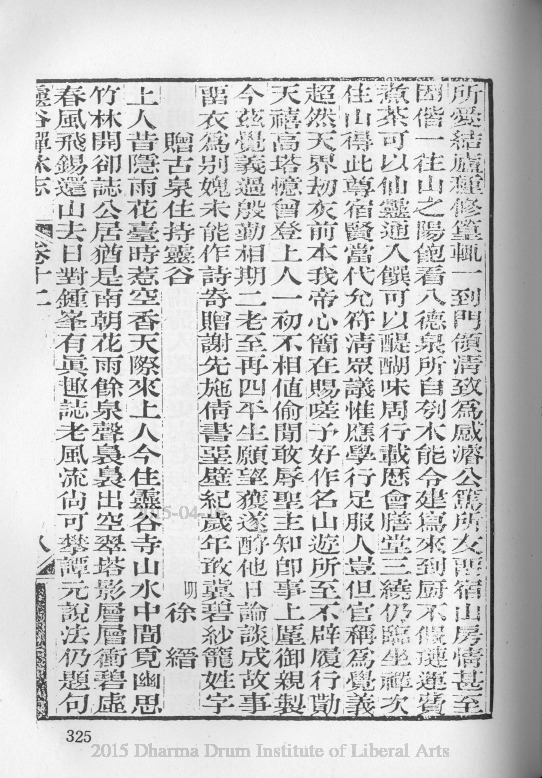 所愛結廬種修篁輒一到門領清致為感濬公舊所友丽宿山房情甚至
因偕一往山之陽飽看八德泉所自刳木能令建瓴來到厨不假鏈運費
煮茶可以仙靈通入饌可以醍醐味周行載歷會膳堂三繞仍臨坐禪次
住山得此尊宿賢當代允符清眾議惟應學行足服人豈但官稱為覺義
超然天界刼灰前本我帝心簡在賜嗟予好作名山遊所至不辟履行勩
天禧高塔憶曾登上人一初不相值偷閒敢辱聖主知卽事上廑御親製
今茲覺義過殷勤相期二老至再四平生願望獲遂酧他日論談成故事
畱衣為别媿未能作詩寄贈謝先施倩書堊壁紀歲年敢冀碧紗籠姓字
贈古泉住持靈谷
明 徐 縉
上人昔隱雨花臺時惹空香天際來上人今住靈谷寺山水中間覓幽思
竹林開卻誌公居猶是南朝花雨餘泉聲裊裊出空翠塔影層層衝碧虛
春風飛錫還山去日對鍾峯有眞趣誌老風流尙可攀譚元說法仍題句
靈谷禪林志 卷十二 八
325
2015 Dharma Drum Institute of Liberal Arts